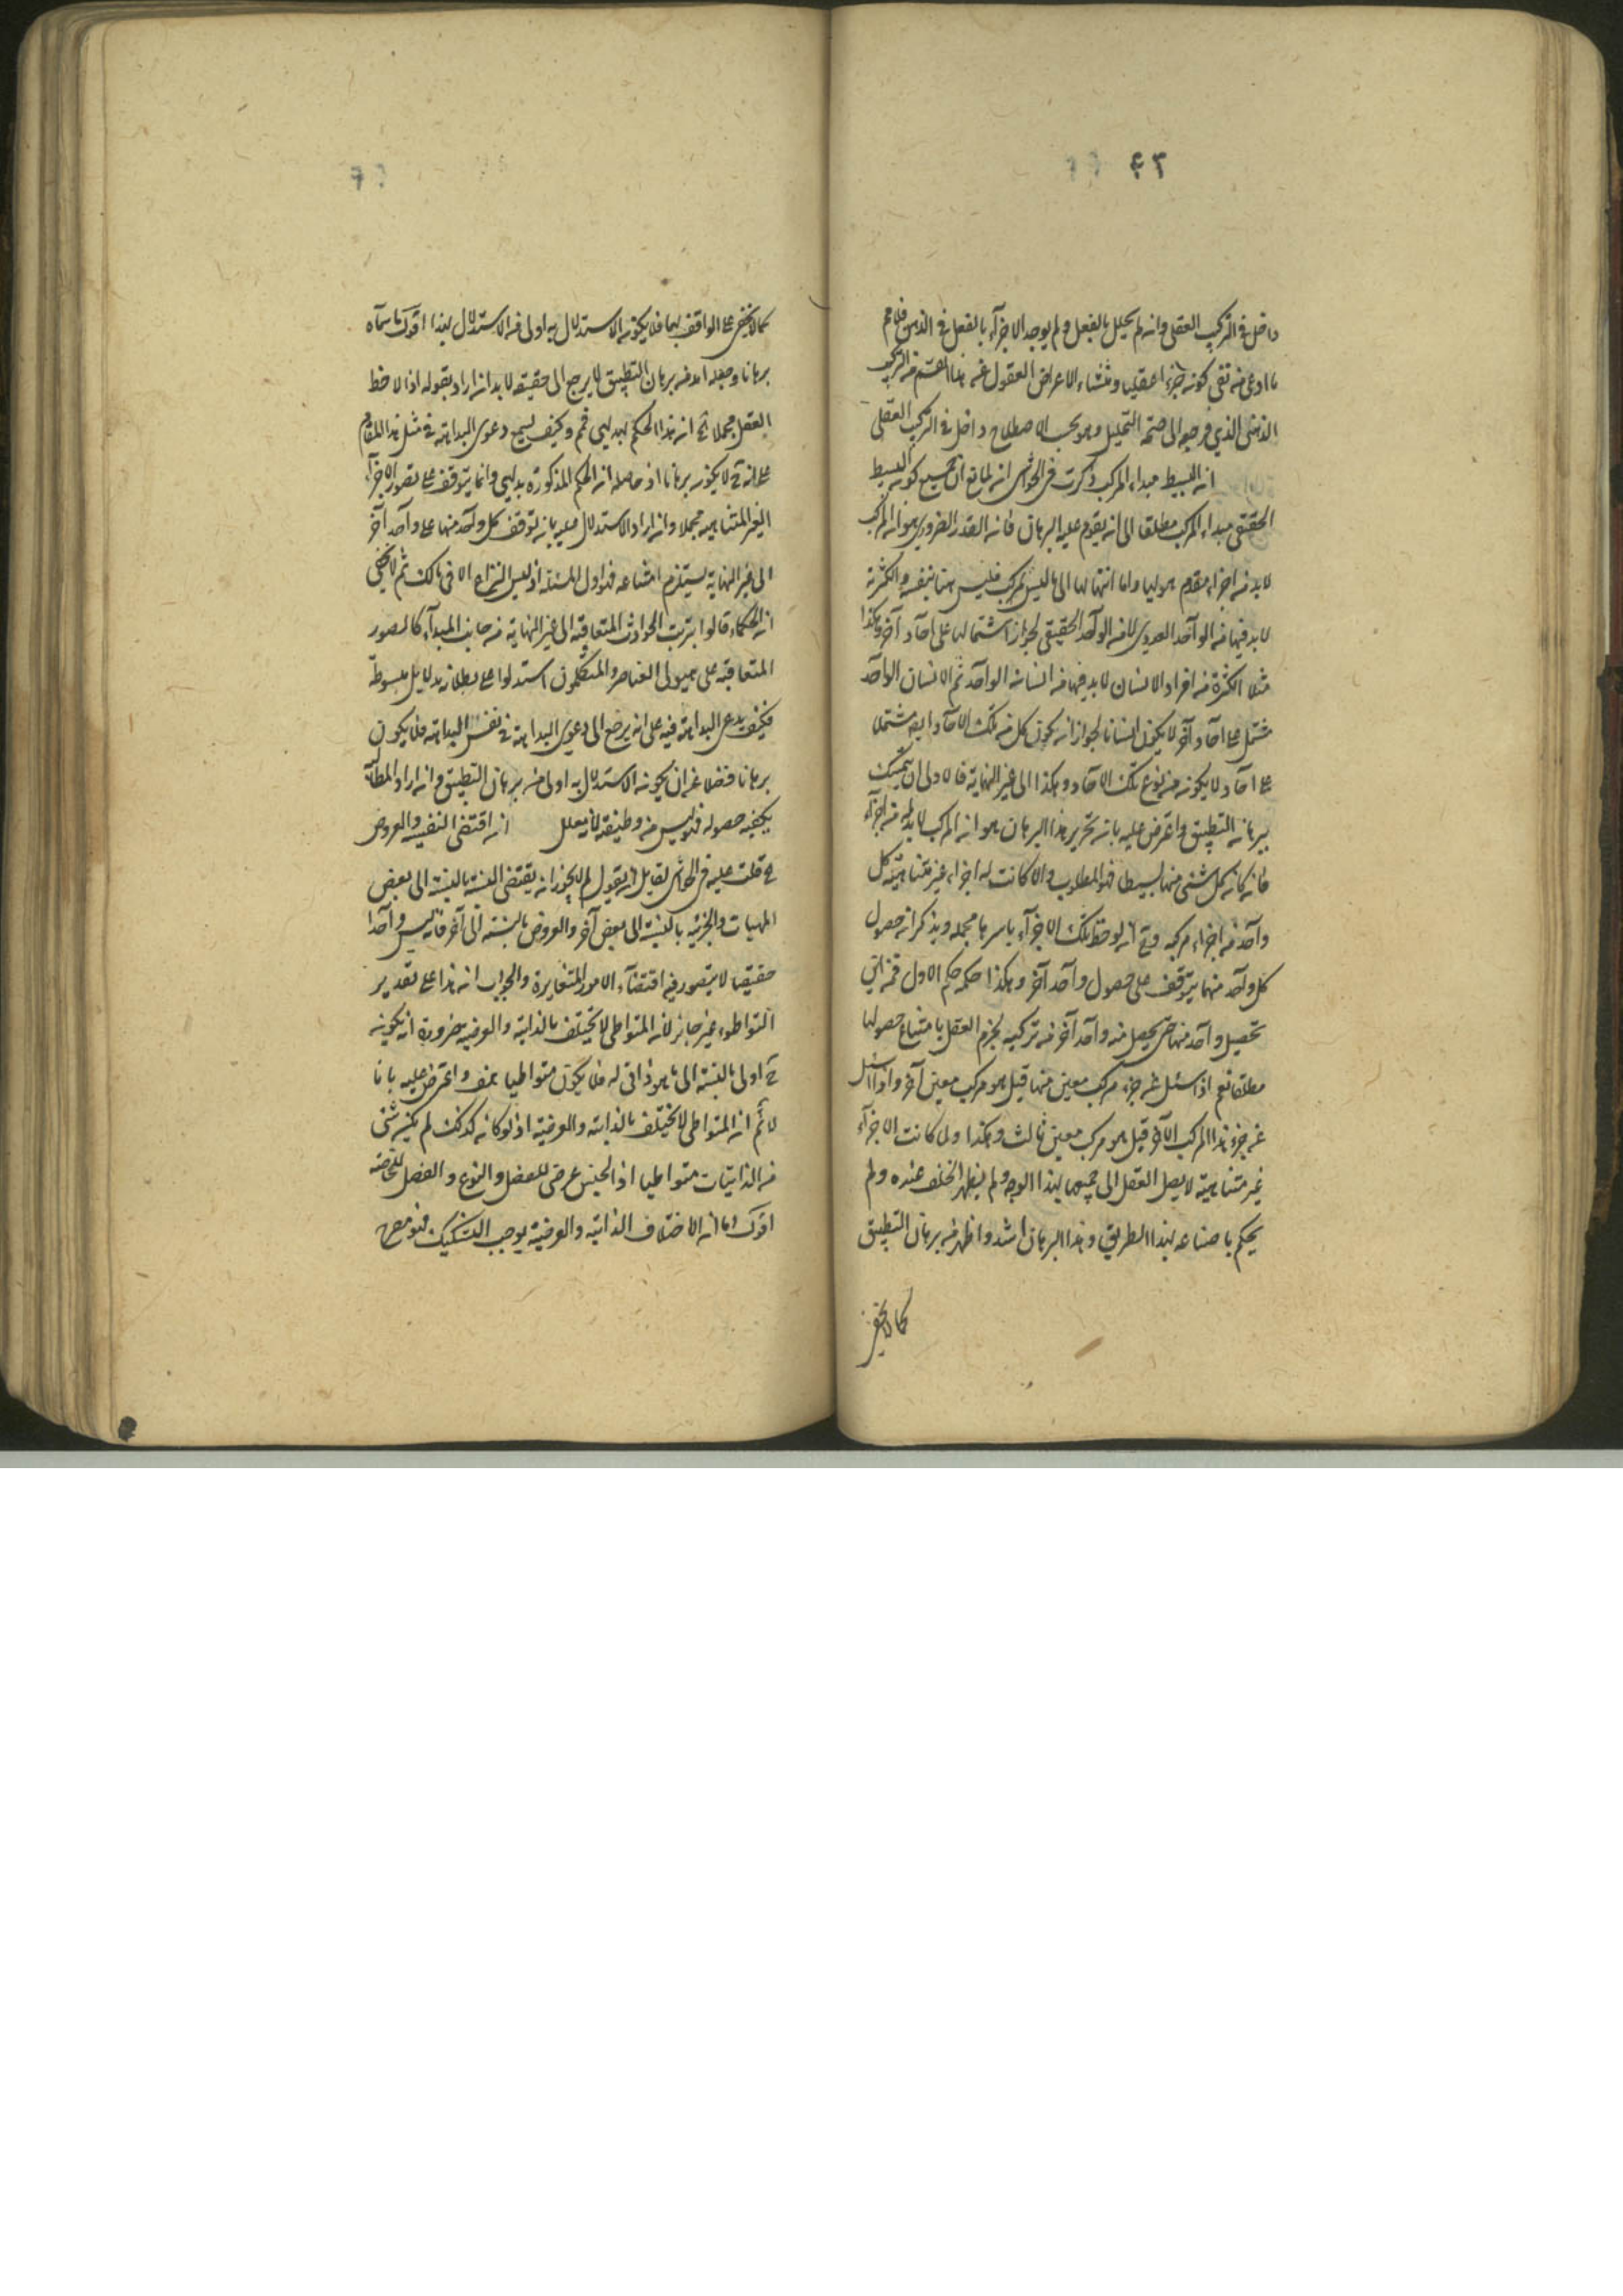 ٤٣
داخل في التركيب العقلي وانه لم يحلل بالفعل ولم يوجد الاجزآء بالفعل في الذهن فلا يتم
ما ادعى من نفي كونه جزءا عقليا ومنشاء الاعراض العقول عن هذا القسم من التركيب
الذهني الذي مرجعه الى صحة التحليل وهو بحسب الاصطلاح داخل في التركيب العقلي
ان البسيط مبداء المركب ذكرت في الحواشي انه لمانع ان يمنع كون البسيط
الحقيقي مبداء المركب مطلقا الى ان يقوم عليه البرهان فان القدر الضروري هو ان المركب
لابد من اجزاء مقدم هوليها واما انتهائها الى ما ليس بمركب فليس بينا بنفسه والكثرة
لابد فيها من الواحد العددي لا من الواحد الحقيقي لجواز اشتمالها على احاد آخر وهكذا
مثلا الكثرة من افراد الانسان لابد فيها من انسان الواحد ثم الانسان الواحد
مشتمل على احاد آخر لا يكون انسانا لجواز ان يكون كل من تلك الاحاد ايضا مشتملا
على احاد لا يكون من نوع تلك الاحاد وهكذا الى غير النهاية فالاولى ان يتمسك
ببرهان التطبيق واعترض عليه بان تحرير هذا البرهان هو ان المركب لابد له من اجزآء
فان كان كل شئ منها بسيطا فهو المطلوب والا كانت له اجزاء غير متناهية كل
واحد من اجزاء مركبه وح اذا لوحظ تلك الاجزآء باسرها مجمله ويذكر ان حصول
كل واحد منها يتوقف على حصول واحد آخر وهكذا حكمه حكم الاول فمن اين
تحصيل واحد منها حتى يحصل منه واحد آخر من تركيبه يجزم العقل بامتناع حصولها
مطلقا نعم اذا سئل عن جزء مركب معين منها قيل هو مركب معين آخر واذا سئل
عن جزء هذا المركب الآخر قيل هو مركب معين ثالث وهكذا ولما كانت الاجزآء
غير متناهية لا يصل العقل الى جميعها بهذا الوجه ولم يظهر الخلف عنده ولم
يحكم بامتناعه بهذا الطريق وهذا البرهان اشد واظهر من برهان التطبيق
كما لا يخفى
كما لا يخفى على الواقف بهما فلا يكون الاستدلال به اولى من الاستدلال بهذا اقول ما سماه
برهانا وجعله اشد من برهان التطبيق لا يرجع الى حقيقة لابد ان اراد بقوله اذا لاحظ
العقل مجملا الخ ان هذا الحكم بديهي فمم وكيف يسمع دعوى البداهة في مثل هذا المقام
على انه ح لا يكون برهانا اذ حاصله ان الحكم المذكورة بديهي وانما يتوقف على تصور الاجزآء
الغير المتناهيه مجملا وان اراد الاستدلال عليه بانه توقف كل واحد منها على واحد آخر
الى غير النهاية يستلزم امتناعه فهو اول المسئلة اذ ليس النزاع الا في ذلك ثم لا يخفى
ان الحكماء قالوا بترتب الحوادث المتعاقبة الى غير النهاية من جانب المبدآء كالصور
المتعاقبة على هيولى العناصر والمتكلمون استدلوا على بطلانه بدلايل مبسوطة
فكيف يدعى البداهة فيه على انه يرجع الى دعوى البداهة في نفس البداهة فلا يكون
برهانا فضلا عن ان يكون الاستدلال به اولى من برهان التطبيق وان اراد المطالبة
بكيفيه حصوله فليس من وظيفة المعلل ان اقتضى النفسيه والعروض
ح قلت عليه في الحواشي لقايل ان يقول لم لا يجوز ان يقتضى العينية بالنسبة الى بعض
المهيات والجزئيه بالنسبة الى بعض آخر والعروض بالنسبة الى آخر فانه ليس واحدا
حقيقيا لا يتصور فيه اقتضآء الامور المتغايرة والجواب ان هذا على تقدير
التواطوء غير جايز لان المتواطى لا يختلف بالذاتيه والعرضيه ضرورة ان يكون
ح اولى بالنسبة الى ما هو ذاتى له فلا يكون متواطيا هف واعترض عليه بانا
لانم ان المتواطى لا يختلف بالذاتيه والعرضية اذ لو كان كذلك لم يكن شئ
من الذاتيات متواطيا اذ الجنس عرضى للفصل والنوع والفصل للخاصة
اقول اما ان الاختلاف الذاتية والعرضية يوجب التشكيك فهو مصرح